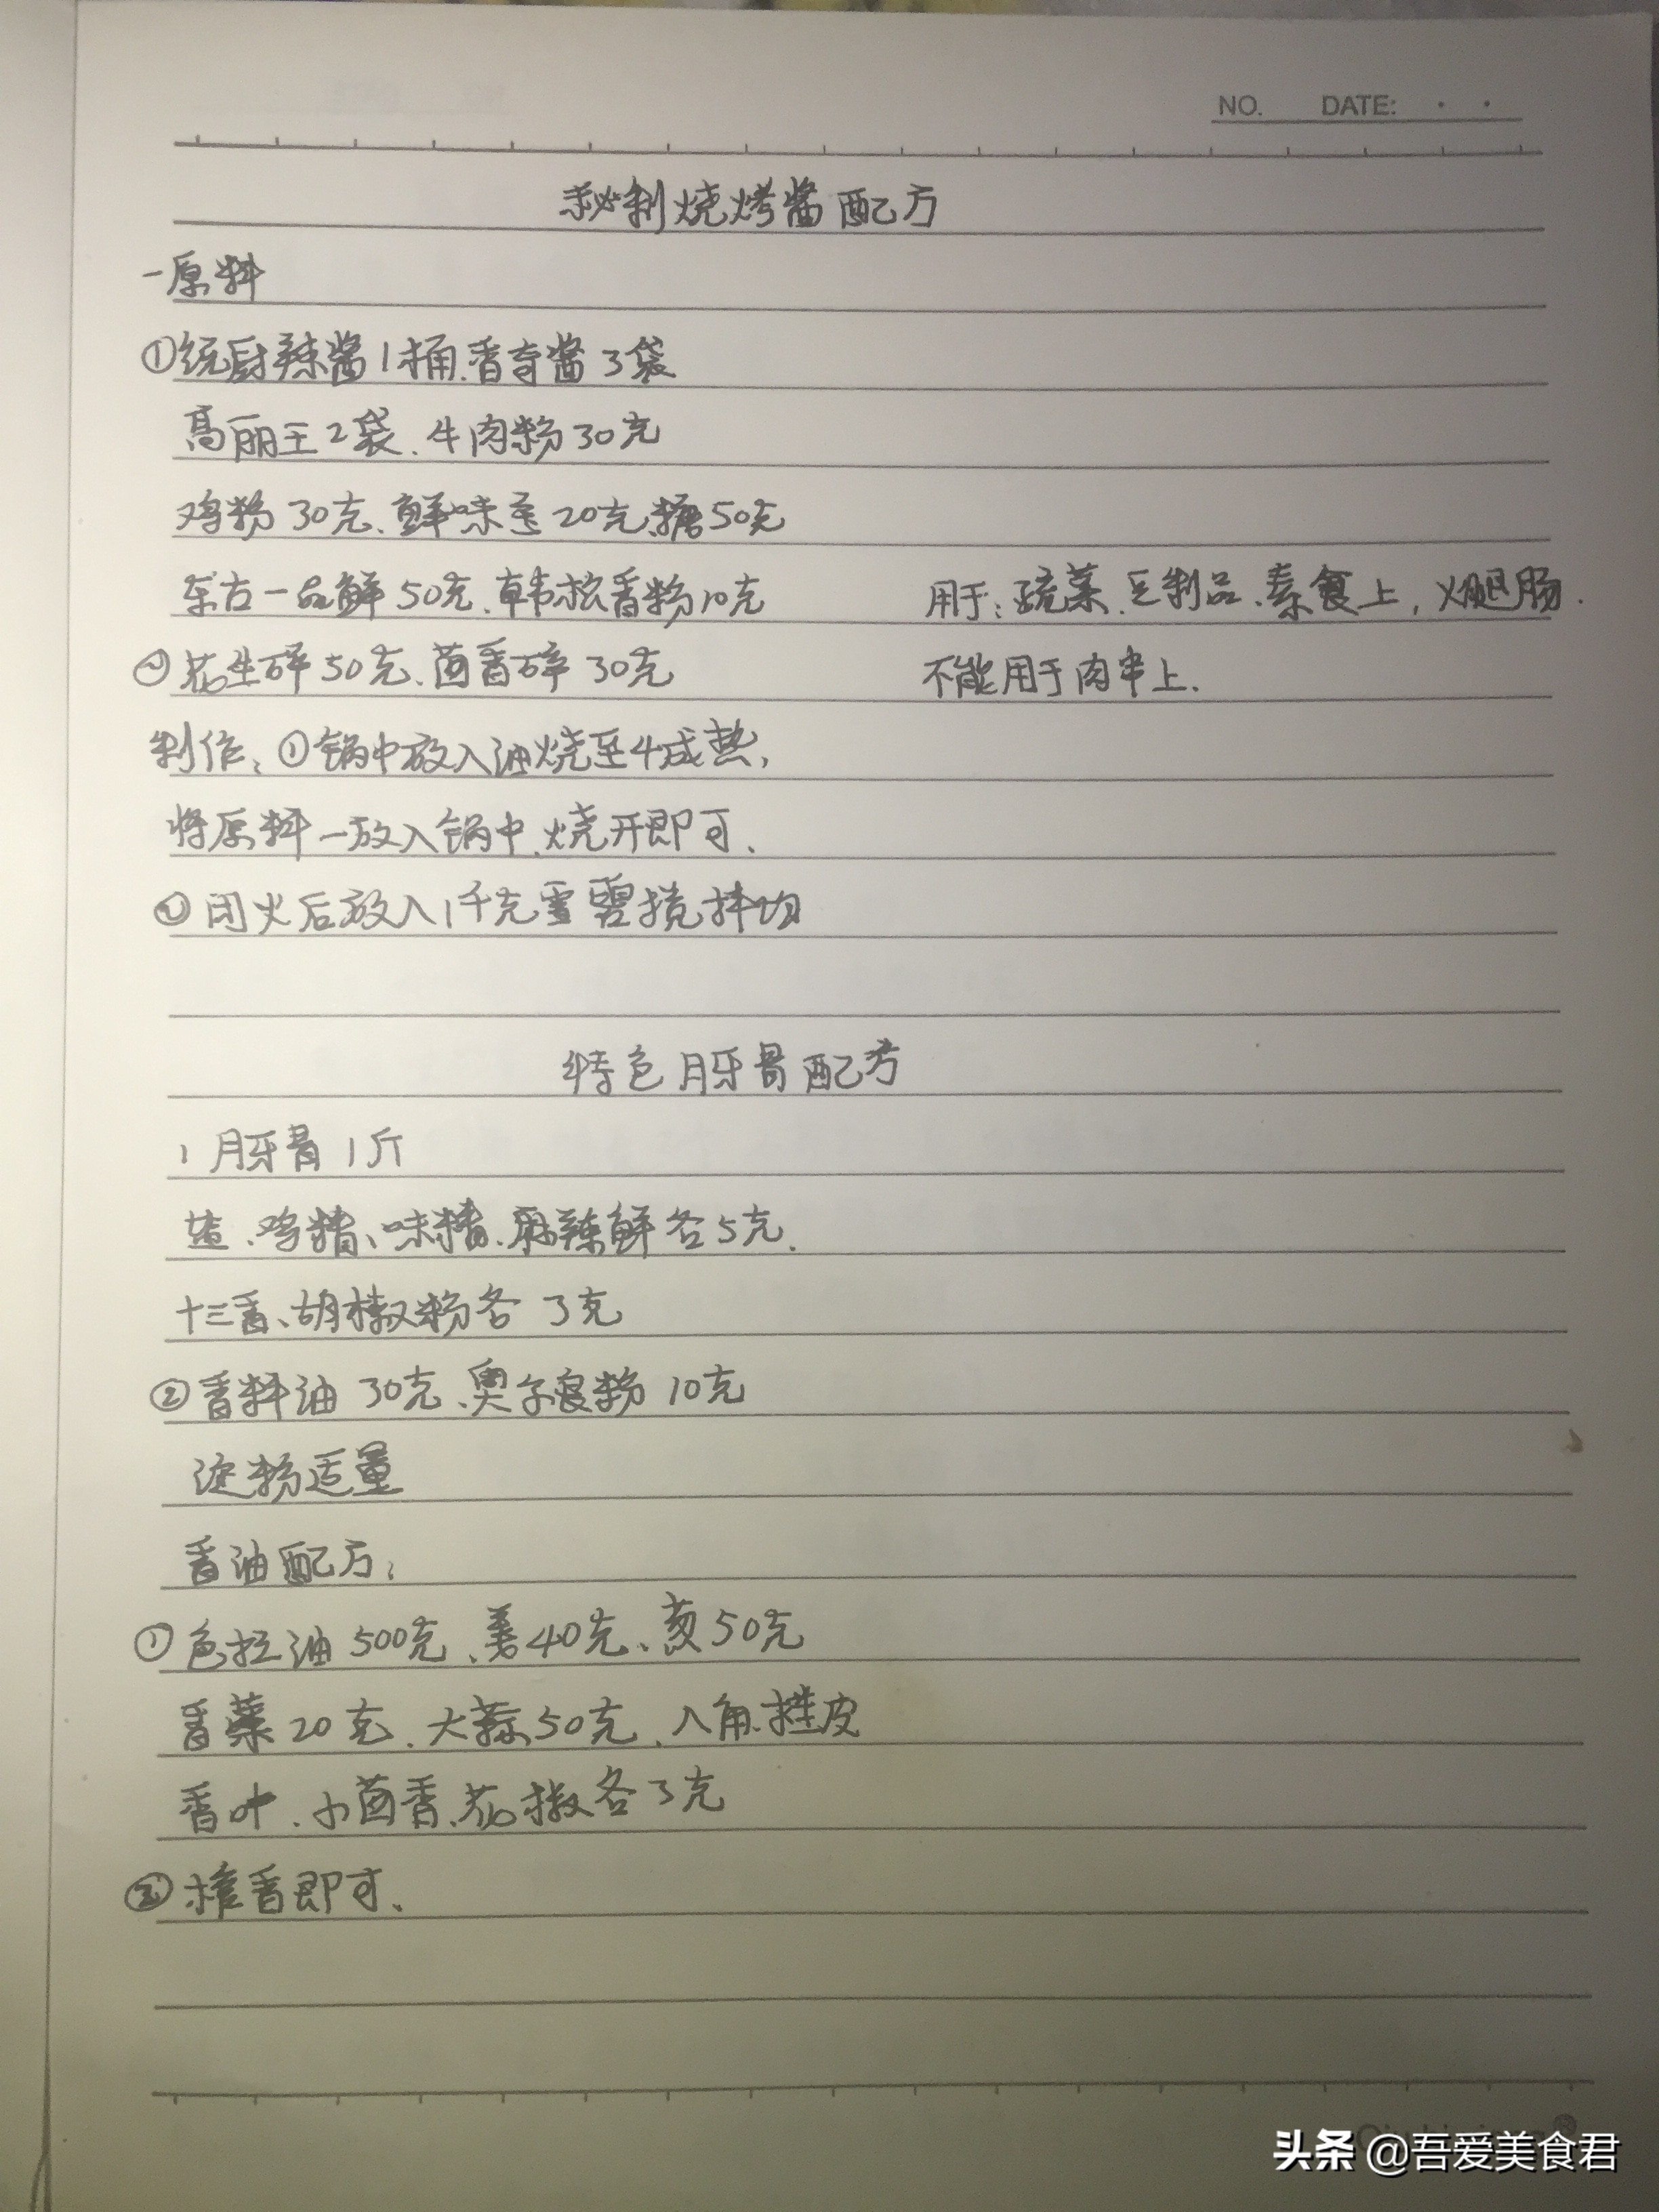 NO. DATE: · ·
秘制烧烤酱配方
一原料
①统厨辣酱1桶.香奇酱3袋
高丽王2袋、牛肉粉30克
鸡粉30克、鲜味宝20克、糖50克
东古一品鲜50克、韩松香粉10克
用于:蔬菜、豆制品、素食上,火腿肠.
②花生碎50克、茴香碎30克
不能用于肉串上.
制作:①锅中放入油烧至4成热,
将原料一放入锅中、烧开即可、
②闭火后放入1千克雪碧搅拌均
特色月牙骨配方
1 月牙骨1斤
盐、鸡精、味精、麻辣鲜各5克.
十三香、胡椒粉各3克
②香料油30克、奥尔良粉10克
淀粉适量
香油配方:
①色拉油500克、姜40克、葱50克
香菜20克、大蒜50克、八角、桂皮
香叶、小茴香、花椒各3克
②榨香即可、
头条 @吾爱美食君